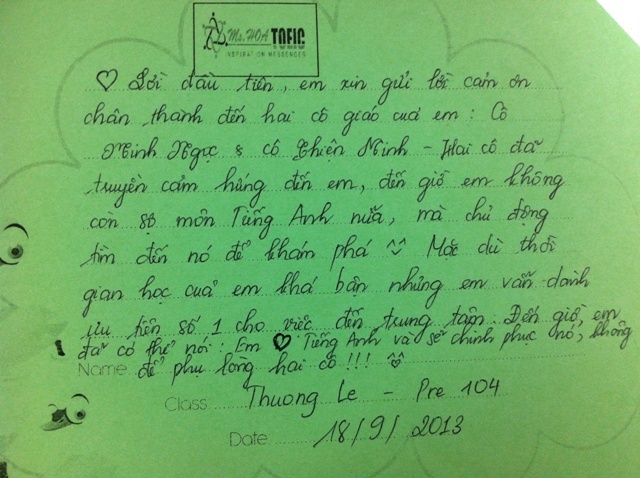 Ms. HOA TOEIC
ASPIRATION MESSENGER
♡ Lời đầu tiên, em xin gửi lời cảm ơn
chân thành đến hai cô giáo của em : Cô
Minh Ngọc & cô Thiện Minh - Hai cô đã
truyền cảm hứng đến em, đến giờ em không
còn sợ môn Tiếng Anh nữa, mà chủ động
tìm đến nó để khám phá ^^ Mặc dù thời
gian học của em khá bận nhưng em vẫn dành
ưu tiên số 1 cho việc đến trung tâm. Đến giờ, em
đã có thể nói : Em ♡ Tiếng Anh và sẽ chinh phục nó, không
Name để phụ lòng hai cô !!! ^^
Class Thuong Le - Pre 104
Date 18/9/2013